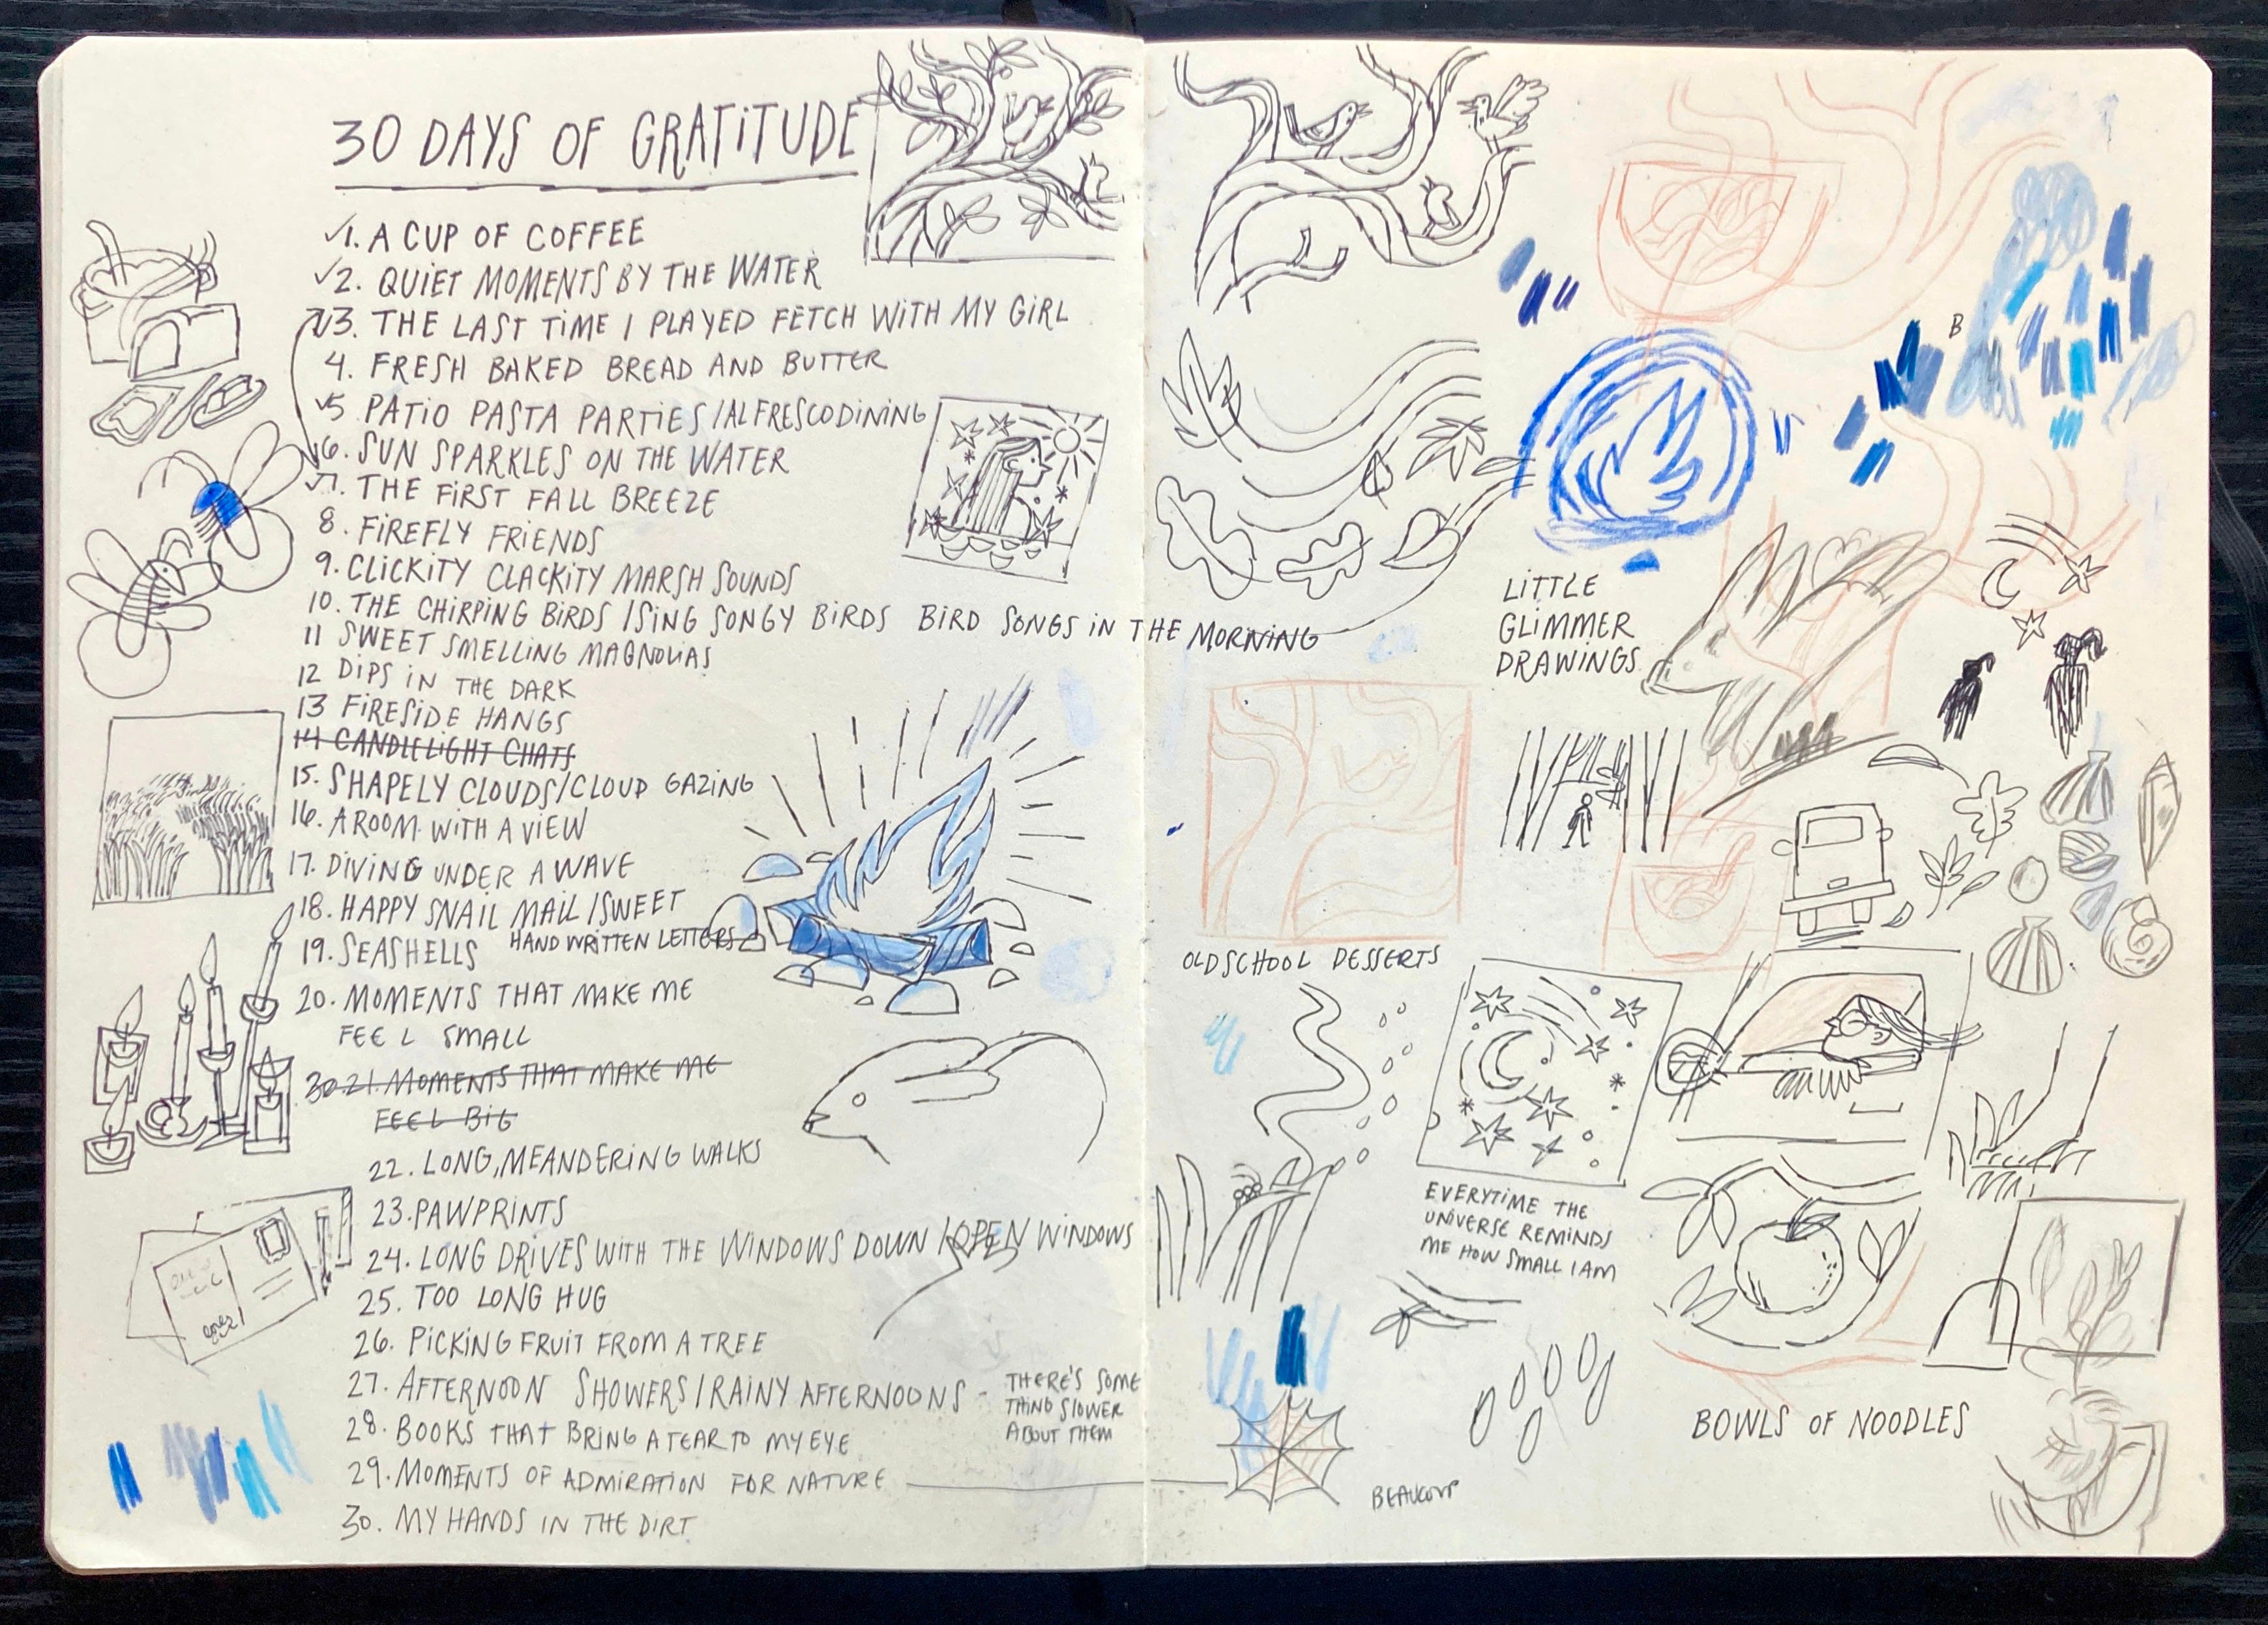 30 DAYS OF GRATITUDE
✓1. A CUP OF COFFEE
✓2. QUIET MOMENTS BY THE WATER
✓3. THE LAST TIME I PLAYED FETCH WITH MY GIRL
4. FRESH BAKED BREAD AND BUTTER
✓5 PATIO PASTA PARTIES/ALFRESCO DINING
✓6. SUN SPARKLES ON THE WATER
✓7. THE FIRST FALL BREEZE
8. FIREFLY FRIENDS
9. CLICKITY CLACKITY MARSH SOUNDS
10. THE CHIRPING BIRDS /SING SONGY BIRDS BIRD SONGS IN THE MORNING
11 SWEET SMELLING MAGNOLIAS
12 DIPS IN THE DARK
13 FIRESIDE HANGS
14 CANDLELIGHT CHATS
15. SHAPELY CLOUDS/CLOUD GAZING
16. A ROOM WITH A VIEW
17. DIVING UNDER A WAVE
18. HAPPY SNAIL MAIL /SWEET
HAND WRITTEN LETTERS
19. SEASHELLS
20. MOMENTS THAT MAKE ME
FEEL SMALL
21. MOMENTS THAT MAKE ME
FEEL BIG
22. LONG, MEANDERING WALKS
23. PAWPRINTS
24. LONG DRIVES WITH THE WINDOWS DOWN /OPEN WINDOWS
25. TOO LONG HUG
26. PICKING FRUIT FROM A TREE
27. AFTERNOON SHOWERS/RAINY AFTERNOONS -
THERE'S SOME
THING SLOWER
ABOUT THEM
28. BOOKS THAT BRING A TEAR TO MY EYE
29. MOMENTS OF ADMIRATION FOR NATURE
30. MY HANDS IN THE DIRT
B
LITTLE
GLIMMER
DRAWINGS
OLD SCHOOL DESSERTS
EVERYTIME THE
UNIVERSE REMINDS
ME HOW SMALL I AM
BOWLS OF NOODLES